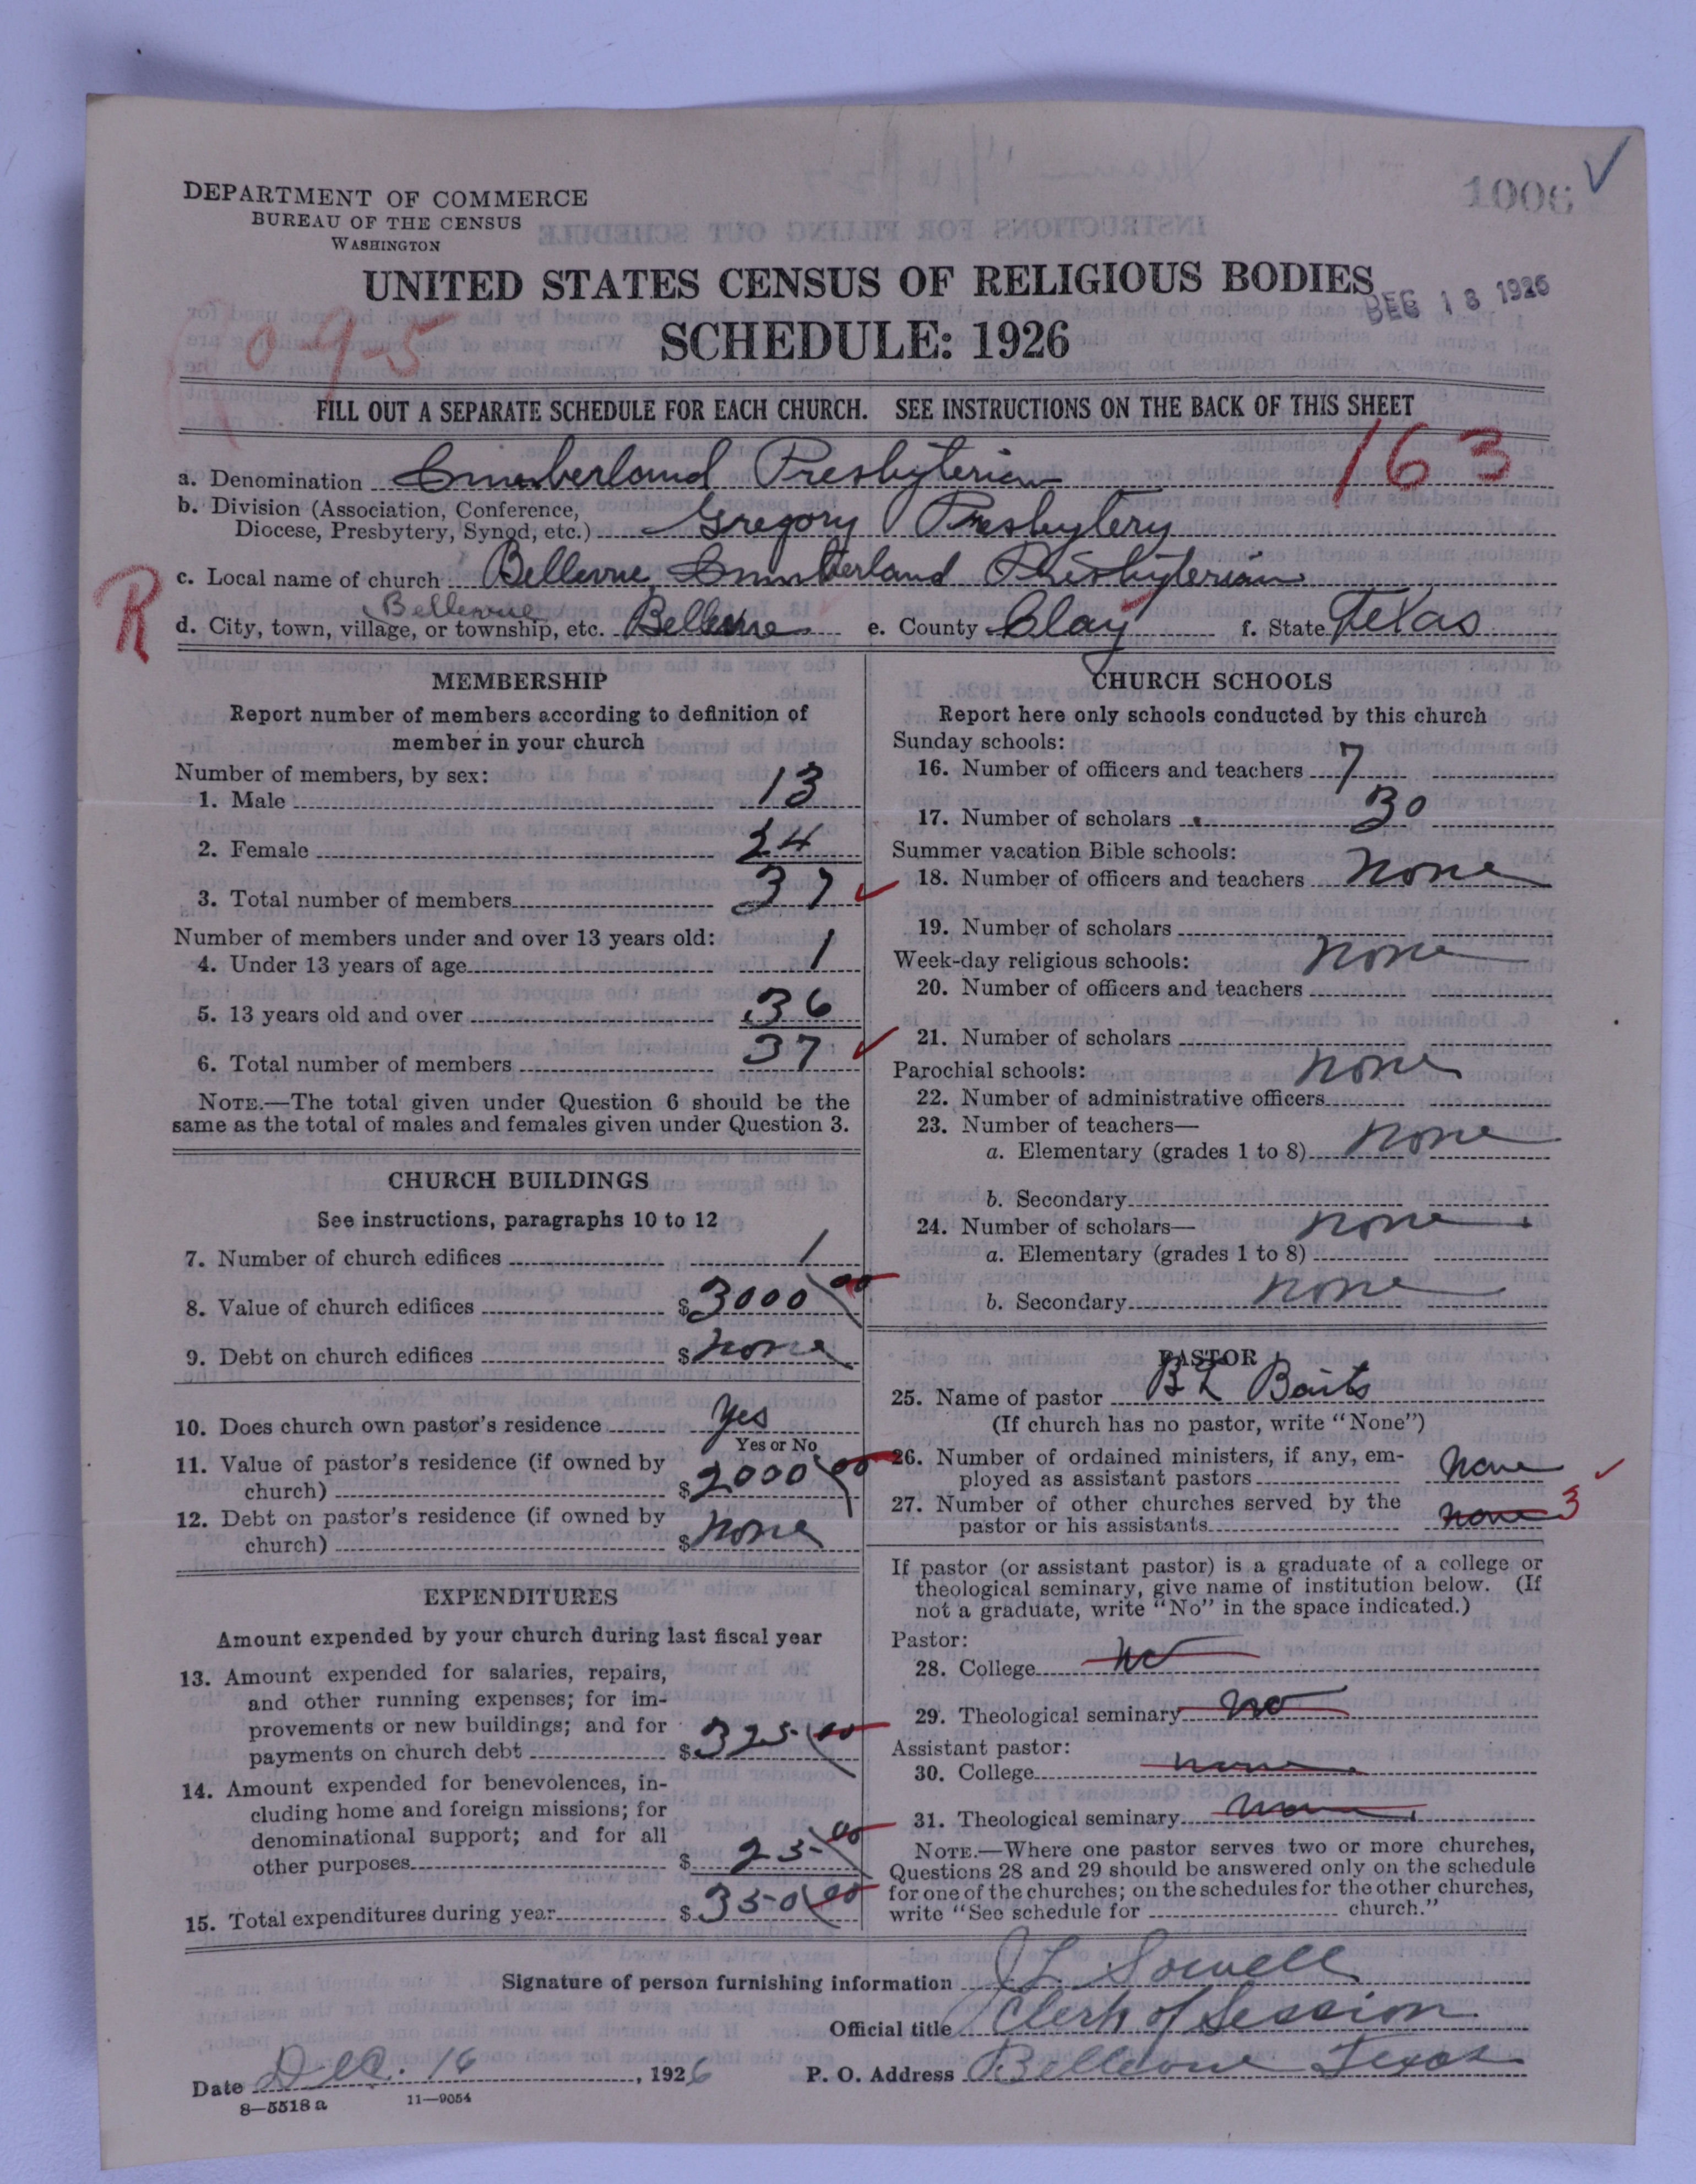 DEPARTMENT OF COMMERCE
BUREAU OF THE CENSUS
WASHINGTON
1006 ✓
UNITED STATES CENSUS OF RELIGIOUS BODIES
SCHEDULE: 1926
DEC 18 1926
0-9-5
FILL OUT A SEPARATE SCHEDULE FOR EACH CHURCH. SEE INSTRUCTIONS ON THE BACK OF THIS SHEET
163
a. Denomination Cumberland Presbyterian
b. Division (Association, Conference,
Diocese, Presbytery, Synod, etc.) Gregory Presbytery
R
c. Local name of church Bellevue Cumberland Presbyterian
Bellevue
d. City, town, village, or township, etc. Bellevue e. County Clay f. State Texas
MEMBERSHIP
Report number of members according to definition of
member in your church
Number of members, by sex:
1. Male 13
2. Female 24
3. Total number of members 37 ✓
Number of members under and over 13 years old:
4. Under 13 years of age 1
5. 13 years old and over 36
6. Total number of members 37 ✓
NOTE.—The total given under Question 6 should be the
same as the total of males and females given under Question 3.
CHURCH BUILDINGS
See instructions, paragraphs 10 to 12
7. Number of church edifices 1
8. Value of church edifices $3000 00
9. Debt on church edifices $ none
10. Does church own pastor's residence Yes
Yes or No
11. Value of pastor's residence (if owned by
church) $2000 00
12. Debt on pastor's residence (if owned by
church) $ none
EXPENDITURES
Amount expended by your church during last fiscal year
13. Amount expended for salaries, repairs,
and other running expenses; for im-
provements or new buildings; and for
payments on church debt $325 00
14. Amount expended for benevolences, in-
cluding home and foreign missions; for
denominational support; and for all
other purposes $ 25 00
15. Total expenditures during year $ 350 00
CHURCH SCHOOLS
Report here only schools conducted by this church
Sunday schools:
16. Number of officers and teachers 7
17. Number of scholars 30
Summer vacation Bible schools:
18. Number of officers and teachers none
19. Number of scholars
Week-day religious schools: none
20. Number of officers and teachers
21. Number of scholars
Parochial schools: none
22. Number of administrative officers
23. Number of teachers—
a. Elementary (grades 1 to 8) none
b. Secondary
24. Number of scholars— none
a. Elementary (grades 1 to 8)
b. Secondary none
PASTOR
25. Name of pastor B L Baits
(If church has no pastor, write "None")
26. Number of ordained ministers, if any, em-
ployed as assistant pastors none ✓
27. Number of other churches served by the
pastor or his assistants none 3
If pastor (or assistant pastor) is a graduate of a college or
theological seminary, give name of institution below. (If
not a graduate, write "No" in the space indicated.)
Pastor:
28. College no
29. Theological seminary no
Assistant pastor:
30. College none
31. Theological seminary none
NOTE.—Where one pastor serves two or more churches,
Questions 28 and 29 should be answered only on the schedule
for one of the churches; on the schedules for the other churches,
write "See schedule for church."
Signature of person furnishing information J L Sowell
Official title Clerk of Session
Date Dec. 16, 1926 P. O. Address Bellevue Texas
8—5518 a 11—9054